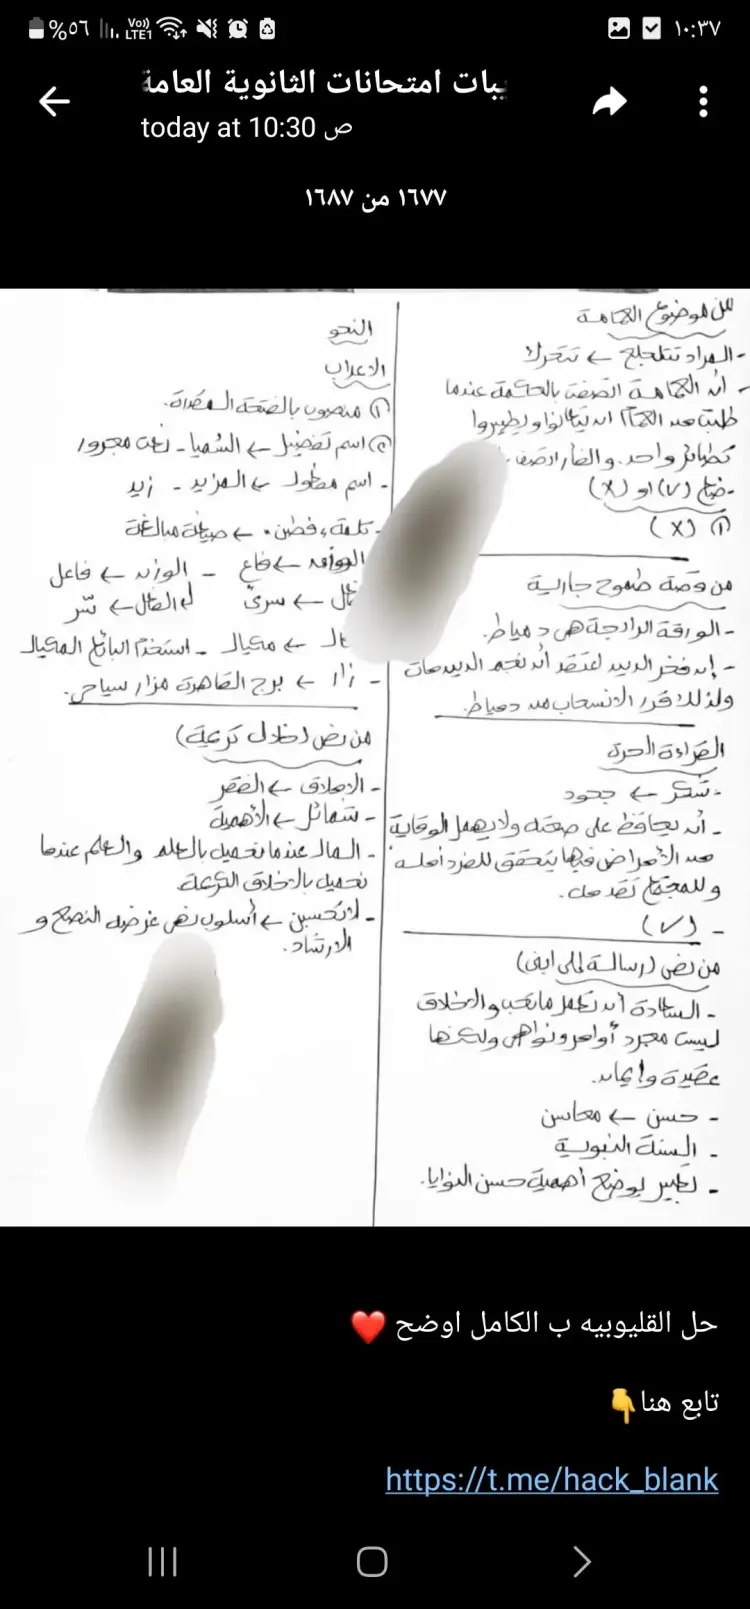 ١٠:٣٧
%٥٦
Vo))
LTE1
يبات امتحانات الثانوية العامة
today at 10:30 ص
١٦٧٧ من ١٦٨٧
من موضوع الحمامة
- المراد تتلجلج ← تتحرك
- أن الحمامة اتصفت بالحكمة عندما
طلبت من الحمام ان يتعاونوا ويطيروا
كطائر واحد. والفأر اتصف
- ضع (√) او (X)
١) (X)
من قصة طموح جارية
- الورقة الرابحة هي دمياط.
- إن فخر الدين اعتقد أن نجم الدين مات
ولذلك قرر الانسحاب من دمياط.
القراءة الحرة
- شكر ← جحود
- أن يحافظ على صحته ولا يهمل الوقاية
من الأمراض فبها يتحقق للفرد أمله
وللمجتمع تقدمه.
- (√)
من نص (رسالة إلى ابني)
- السعادة أن تعمل ما تحب والاخلاق
ليست مجرد أوامر ونواهي ولكنها
عقيدة وإيمان.
- حسن ← محاسن
- السنة النبوية
- تعبير يوضح أهمية حسن النوايا.
النحو
الاعراب
١) منصوب بالفتحة المقدرة.
٢) اسم تفضيل ← الشميا - نعت مجرور
- اسم مفعول ← المزيد - زيد
- كلمة، فطن. ← صيغة مبالغة
الوزن ← فاع - الوزن ← فاعل
← سرى المثال ← سر
← مكيال - استخدم البائع المكيال
- زار ← برج القاهرة مزار سياحي.
من نص (خلال كريمة)
- الإملاق ← الفقر
- شمائل ← الأهمية
- المال عندما تحميل بالعلم والعلم عندما
تحميل بالاخلاق الكريمة
- لا تحسبن ← أسلوب نهي غرضه النصح و
الارشاد.
حل القليوبيه ب الكامل اوضح ❤️
تابع هنا👇
https://t.me/hack_blank